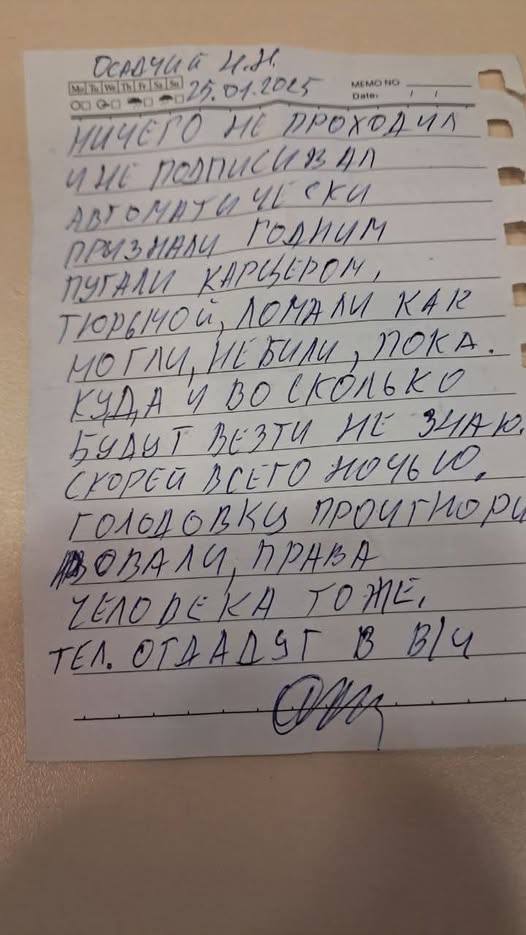 Осадчий И.Н.
Mo Tu We Th Fr Sa Su
MEMO NO.
25.01.2025
Date: / /
НИЧЕГО НЕ ПРОХОДИЛ
И НЕ ПОДПИСИВАЛ
АВТОМАТИЧЕСКИ
ПРИЗНАЛИ ГОДНИМ
ПУГАЛИ КАРЦЕРОМ,
ТЮРЬМОЙ, ЛОМАЛИ КАК
МОГЛИ, НЕ БИЛИ, ПОКА.
КУДА И ВО СКОЛЬКО
БУДУТ ВЕЗТИ НЕ ЗНАЮ.
СКОРЕЙ ВСЕГО НОЧЬЮ.
ГОЛОДОВКУ ПРОИГНОРИ
ВОВАЛИ, ПРАВА
ЧЕЛОВЕКА ТОЖЕ.
ТЕЛ. ОТДАДУТ В В/Ч